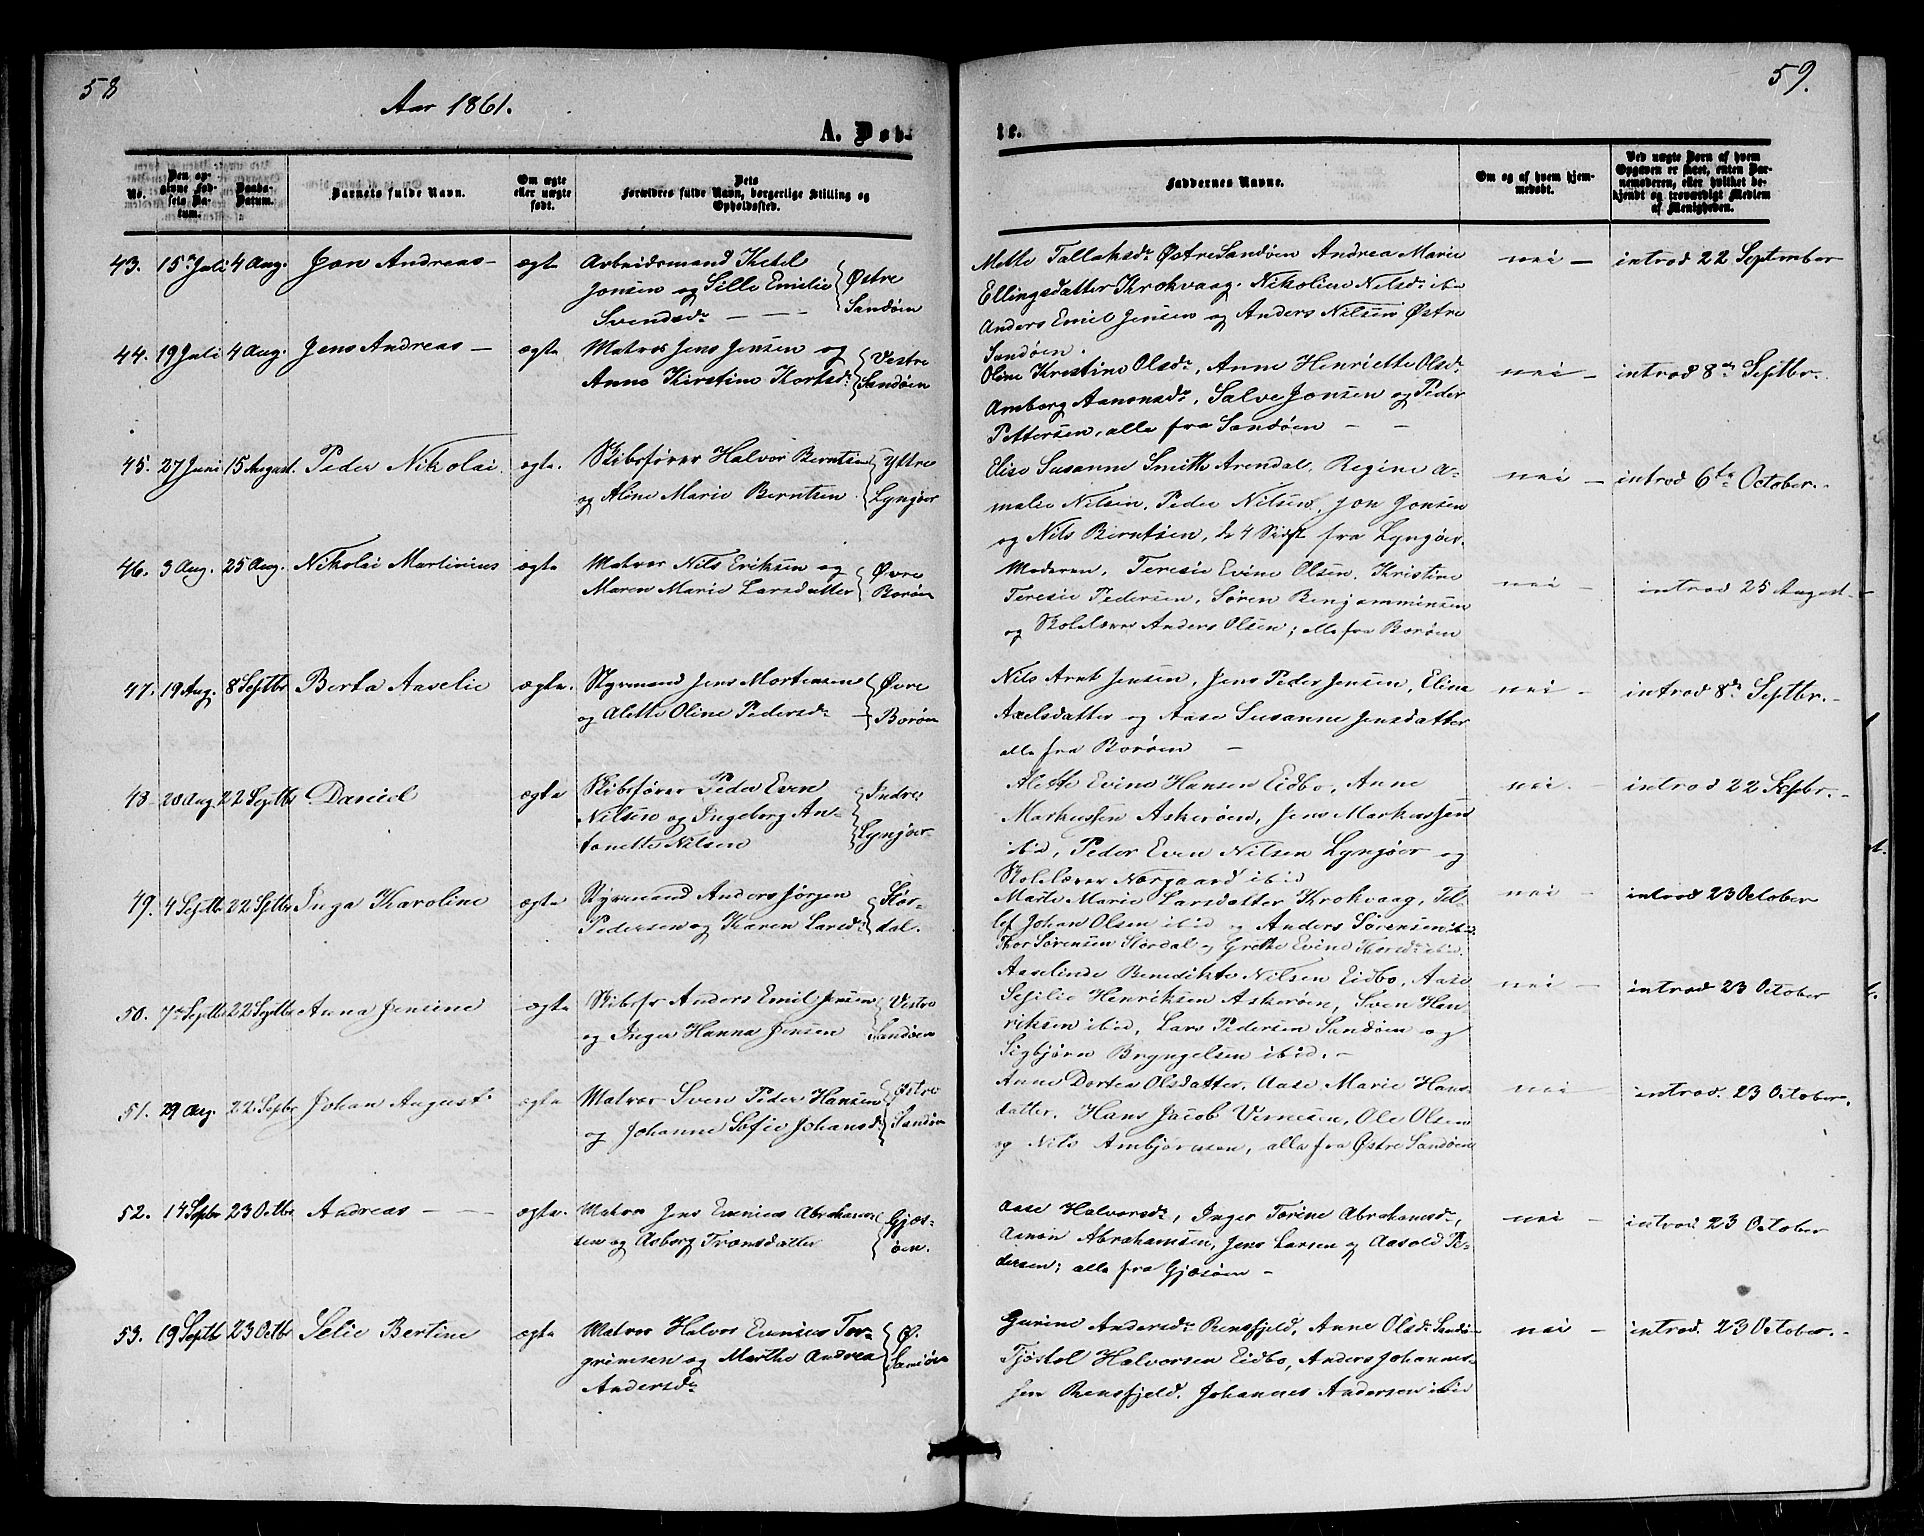 58
Aar 1861.
A. Døb-
No.
Den op-
givne Fød-
sels Da-
tum.
Daabs-
Datum.
Barnets fulde Navn.
Om ægte
eller uægte
født.
Dets
Forældres fulde Navn, borgerlige Stilling og
Opholdssted.
43. 15de Juli 4 Aug. Jon Andreas – ægte Arbeidsmand Ketel
Jonsen og Sille Emilie
Svendsdr – – –
Østre
Sandøen
44. 19 Juli 4 Aug. Jens Andreas – ægte Matros Jens Jensen og
Anne Kirstine Kortsdr
Vestre
Sandøen
45. 27 Juni 15 August. Peder Nikolai. ægte. Skibsfører Halvor Berntsen
og Aline Marie Berntsen
Yttre
Lyngøer
46. 3 Aug. 25 Aug. Nikolai Martinius ægte Matros Nils Eriksen og
Maren Marie Larsdatter
Øvre
Borøen
47. 19 Aug. 8 Septbr Berta Aaselie ægte. Styrmand Jens Mortensen
og Alette Oline Pedersdr
Øvre
Borøen
48 20 Aug 22 Septbr Daniel ægte Skibsfører Peder Even
Nilsen og Ingeborg An-
tonette Nilsen
Indre
Lyngøer
49. 4 Septbr 22 Septbr Inga Karoline ægte Styrmand Anders Jørgen
Pedersen og Karen Larsdr
Stør-
dal.
50. 7de Septbr 22 Septbr Anna Jensine ægte Skibsfr Anders Emil Jensen
og Inger Hanna Jensen
Vestre
Sandøen
51. 29 Aug. 22 Septbr Johan August. ægte Matros Sven Peder Hansen
og Johanne Sofie Johansdr
Østre
Sandøen
52. 14 Septbr 23 Octbr Andreas – – – ægte. Matros Jens Evenius Abraham-
sen og Asborg Trønsdatter
Gjæs-
øen.
53. 19 Septbr 23 Octbr Selie Bertine ægte Matros Halvor Evenius Tor-
grimsen og Marthe Andrea
Andersdr
Ø.
Sandøen
59.
te.
Faddernes Navne.
Om og af hvem hjem-
medøbt.
Ved uægte Børn af hvem
Opgaven er skeet, enten Bar-
nemoderen, eller hvilket be-
kjendt og troværdigt Medlem
af Menigheden.
Mette Tallaksdr Østre Sandøen Andrea Marie
Ellingsdatter Krokvaag. Nikoline Nilsdr ib
Anders Emil Jensen og Anders Nilsen Østre
Sandøen.
nei – introd 22 September
Oline Kristine Olsdr, Anne Henriette Olsdr
Amborg Aanonsdr, Salve Jonsen og Peder
Pettersen, alle fra Sandøen – –
nei – introd 8de Septbr.
Elise Susanne Smith Arendal, Regine A-
malie Nilsen, Peder Nilsen, Jon Jonsen
og Nils Berntsen, de 4 Sidst fra Lyngøer.
nei – introd 6te October.
Moderen, Teresie Evine Olsen. Kristine
Teresie Pedersen, Søren Benjaminsen
og Skolelærer Anders Olsen; alle fra Borøen
nei – introd 25 August –
Nils Arnt Jensen, Jens Peder Jensen, Elina
Axelsdatter og Aase Susanne Jensdatter
alle fra Borøen –
nei – introd 8de Septbr. –
Alette Evine Hansen Eidbo, Anne
Markussen Askerøen, Jens Markussen
ibid, Peder Even Nilsen Lyngøer og
Skolelærer Norgaard ibid
nei. – introd 22 Sepbr. –
Marte Marie Larsdatter Krokvaag, Tel-
lef Johan Olsen ibid og Anders Sørensen ibid
Thor Sørensen Stördal og Grethe Evine ibid.
nei – introd 23 October
Aaselinde Benedikte Nilsen Eidbo, Aase
Sesilie Henriksen Askerøen, Sven Hen
riksen ibid, Lars Pedersen Sandøen og
Sigbjørn Bryngelsen ibid. –
nei – introd 23 October
Anne Dortea Olsdatter, Aase Marie Hans
datter. Hans Jacob Vernesen, Ole Olsen
og Nils Ambjørnsen, alle fra Østre Sandøen
nei – introd. 23 October.
Aase Halvorsdr, Inger Torine Abrahamsdr,
Aanon Abrahamsen, Jens Larsen og Aasold Pe-
dersen; alle fra Gjæsøen –
nei – introd 23 October
Gurine Andersdr Rensfjeld, Anne Olsdr Sandø
Tjøstol Halvorsen Eidbo, Anders Johannes-
sen Rensfjeld. Johannes Andersen ibid
nei – introd. 23 October. –